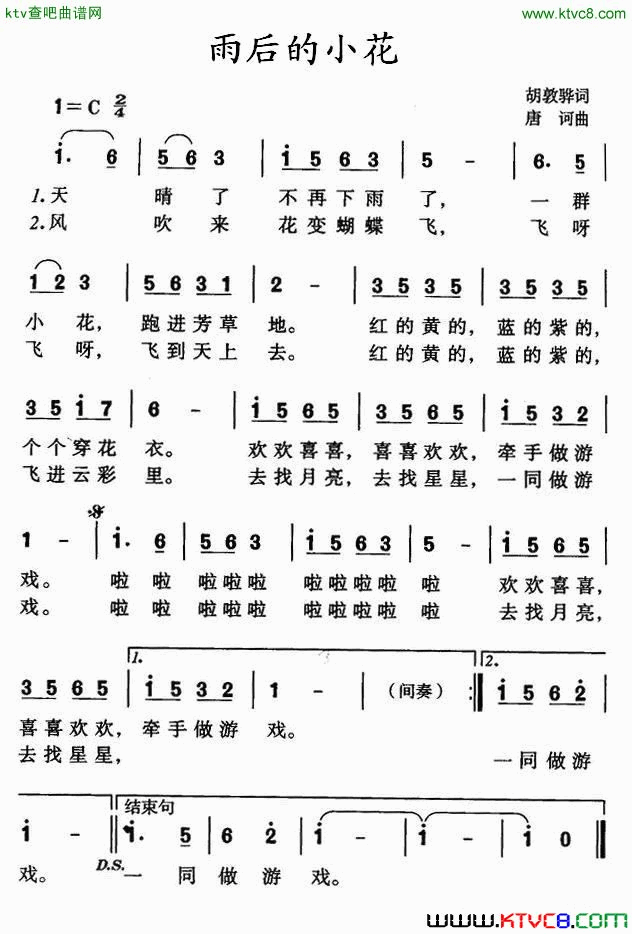 ktv查吧曲谱网
中国曲谱网
www.ktvc8.com
雨后的小花
1=C 2/4
胡敦骅词
唐 诃曲
i· 6 | 5 6 3 | i 5 6 3 | 5 - | 6· 5 |
1.天 晴了 不再下雨了, 一群
2.风 吹来 花变蝴蝶飞, 飞呀
1 2 3 | 5 6 3 1 | 2 - | 3 5 3 5 | 3 5 3 5 |
小花, 跑进芳草地。 红的黄的, 蓝的紫的,
飞呀, 飞到天上去。 红的黄的, 蓝的紫的,
3 5 i 7 | 6 - | i 5 6 5 | 3 5 6 5 | i 5 3 2 |
个个穿花衣。 欢欢喜喜, 喜喜欢欢, 牵手做游
飞进云彩里。 去找月亮, 去找星星, 一同做游
1 - | i· 6 | 5 6 3 | i 5 6 3 | 5 - | i 5 6 5 |
戏。 啦 啦 啦啦啦 啦啦啦啦 啦 欢欢喜喜,
戏。 啦 啦 啦啦啦 啦啦啦啦 啦 去找月亮,
1. 2.
3 5 6 5 | i 5 3 2 | 1 - | (间奏) :| i 5 6 2̇ |
喜喜欢欢, 牵手做游戏。
去找星星, 一同做游
结束句
i - | i· 5 | 6 2̇ | i - | i - | i 0 ‖
D.S.
戏。 一同做游戏。
www.KTVC8.com